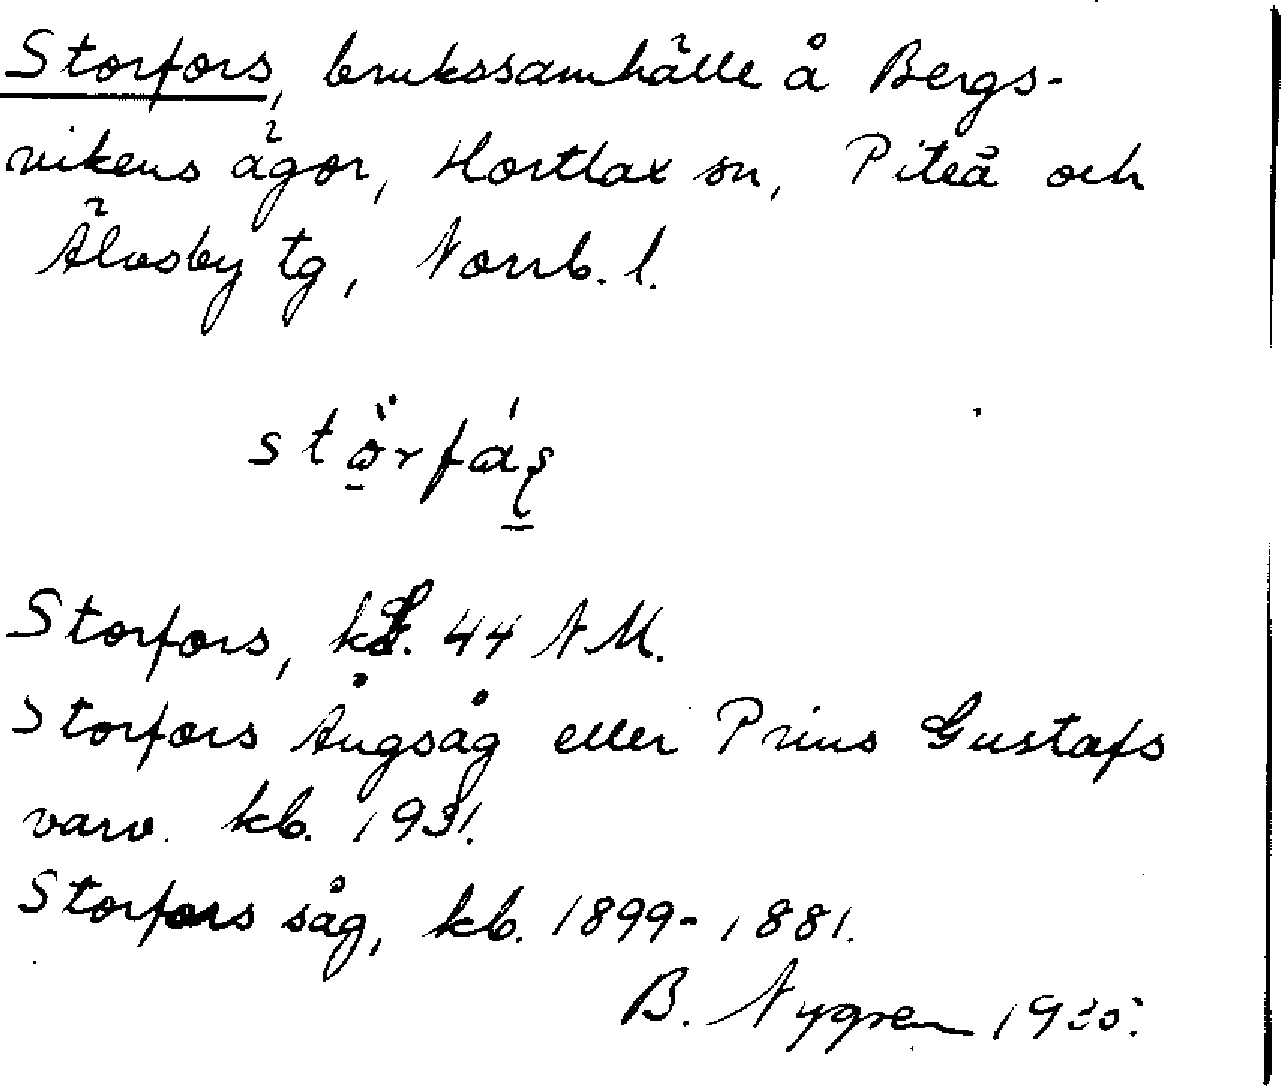 Storfors, brukssamhälle å Bergs-
vikens ägor, Hortlax sn, Piteå och
Älvsby tg, Norrb. l.
Storfors, 44 NM.
Storfors Ångsåg eller Prins Gustafs
varv. kb. 1931.
Storfors såg, kb. 1899-1881.
B. Nygren 1935.